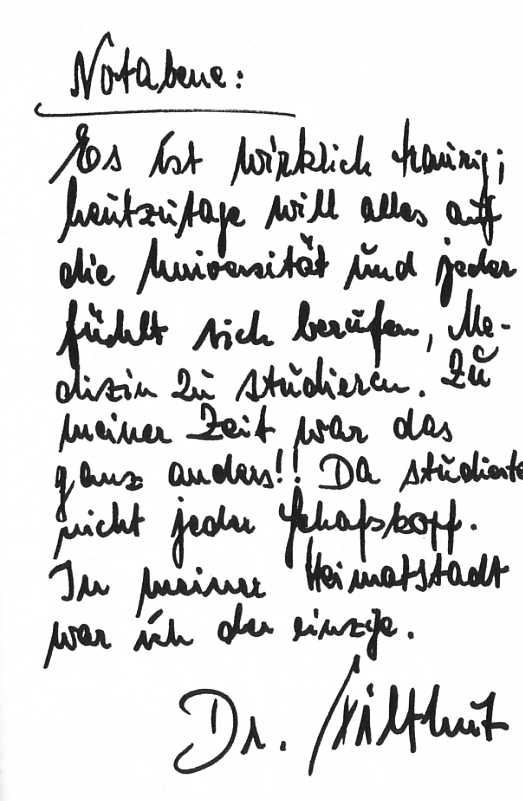 Notabene:
Es ist wirklich traurig;
heutzutage will alles auf
die Universität und jeder
fühlt sich berufen, Me-
dizin zu studieren. Zu
meiner Zeit war das
ganz anders!! Da studierte
nicht jeder Schafskopf.
In meiner Heimatstadt
war ich der einzige.
Dr.